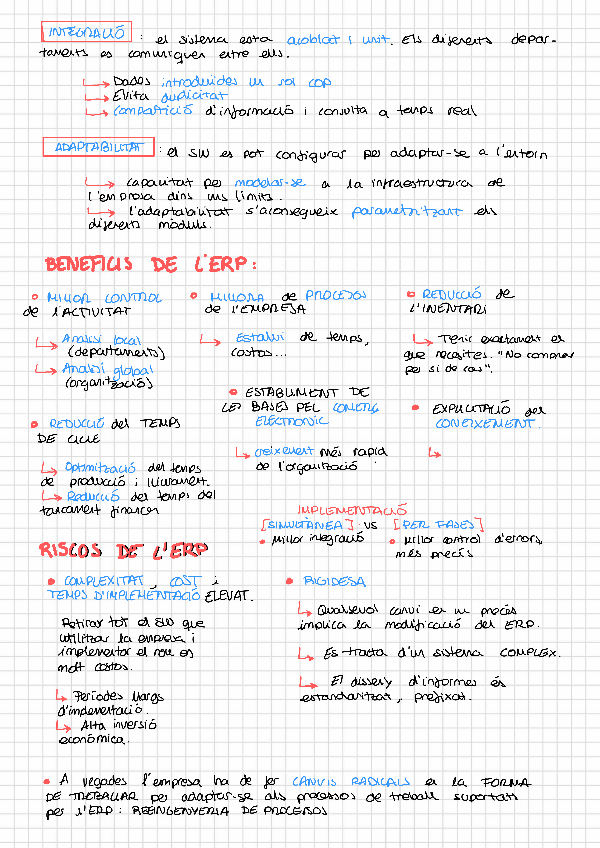 INTEGRACIÓ : el sistema esta acoblat i unit. Els diferents depar-
taments es comuniquen entre ells.
Dades introduides un sol cop
Evita duplicitat
Compartició d'informació i consulta a temps real
ADAPTABILITAT : el SW es pot configurar per adaptar-se a l'entorn
Capacitat per modelar-se a la infraestructura de
l'empresa dins uns límits.
l'adaptabilitat s'aconsegueix parametritzant els
diferents mòduls.
BENEFICIS DE L'ERP:
• MILLOR CONTROL
de l'ACTIVITAT
Analisi local
(departaments)
Analisi global
(organització)
• MILLORA de PROCESOS
de l'EMPRESA
Estalvi de temps,
costos...
• REDUCCIÓ de
L'INVENTARI
Tenir exactament el
que necesites. "No comprar
per si de cas".
• REDUCCIÓ del TEMPS
DE CICLE
Optimització del temps
de producció i lliurament.
Reducció del temps del
tancament financer
• ESTABLIMENT DE
LES BASES PEL COMERÇ
ELECTRONIC
creixement més rapid
de l'organització
• EXPLICITACIÓ del
CONEIXEMENT.
IMPLEMENTACIÓ
[SIMULTÀNEA] vs [PER FASES]
• Millor integració
• Millor control d'errors,
més precís
RISCOS DE L'ERP
• COMPLEXITAT, COST i
TEMPS D'IMPLEMENTACIÓ ELEVAT.
Retirar tot el SW que
utilitzar la empresa i
implementar el nou es
molt costos.
Períodes llargs
d'implementació.
Alta inversió
econòmica.
• RIGIDESA
Qualsevol canvi en un procés
implica la modificació del ERP.
Es tracta d'un sistema COMPLEX.
El disseny d'informes és
estandaritzat, prefixat.
• A vegades l'empresa ha de fer CANVIS RADICALS en la FORMA
DE TREBALLAR per adaptar-se als processos de treball suportats
per l'ERP : REENGINYERIA DE PROCESSOS